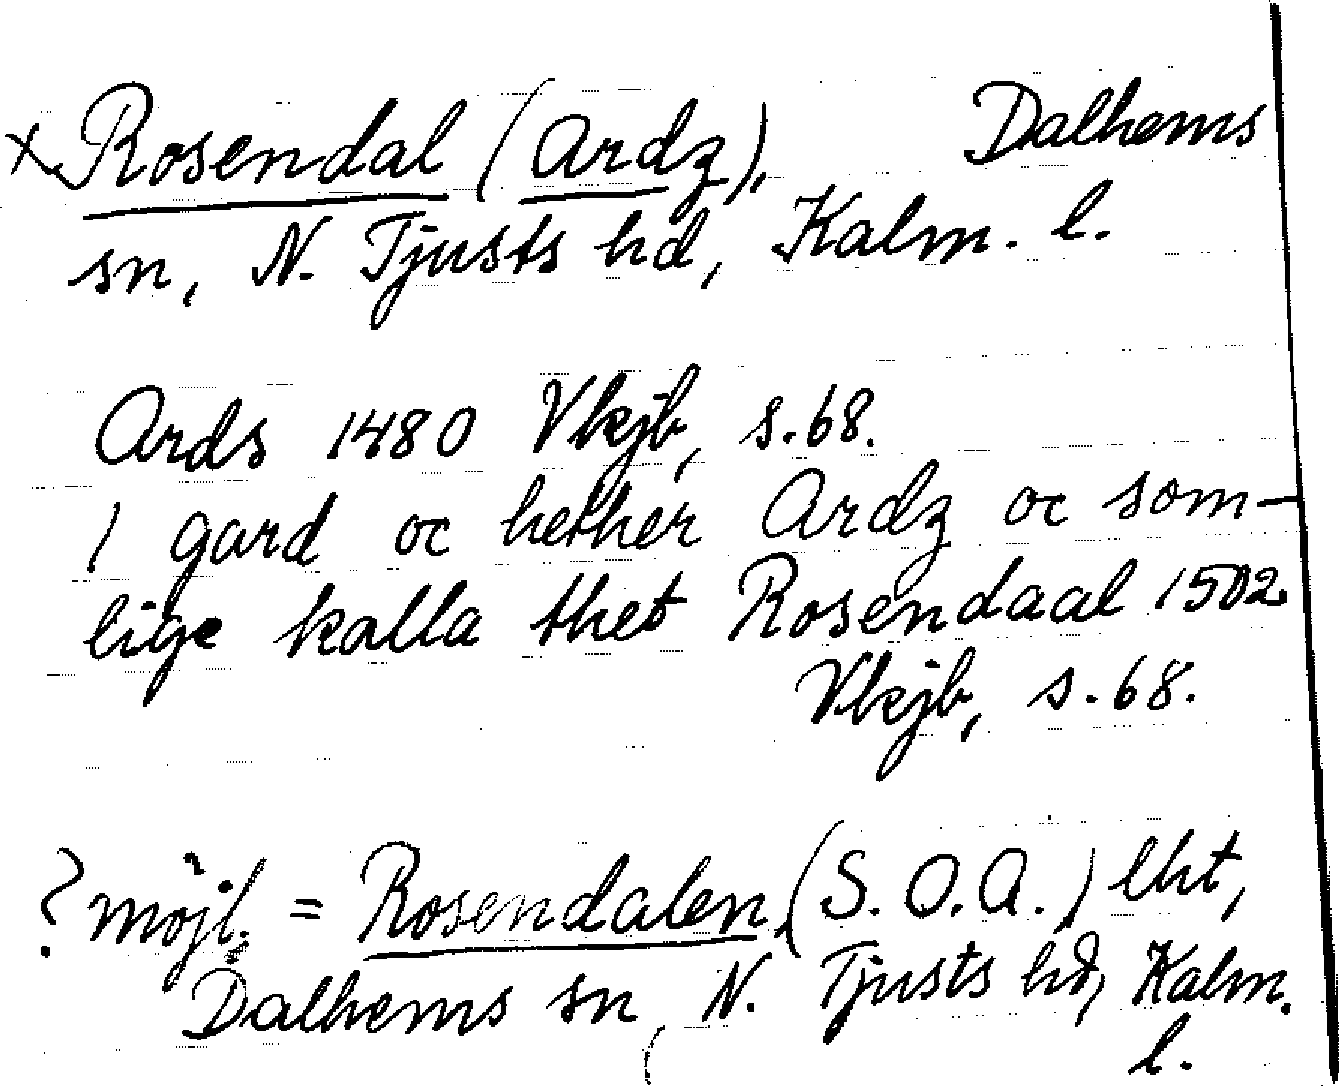 × Rosendal (Ardz), Dalhems
sn, N. Tjusts hd, Kalm. l.
Ards 1480 Vkjb, s. 68.
1 gard oc hether Ardz oc som-
lige kalla thet Rosendaal 1502
Vkjb, s. 68.
? möjl. = Rosendalen (S.O.A.) lht,
Dalhems sn, N. Tjusts hd, Kalm.
l.